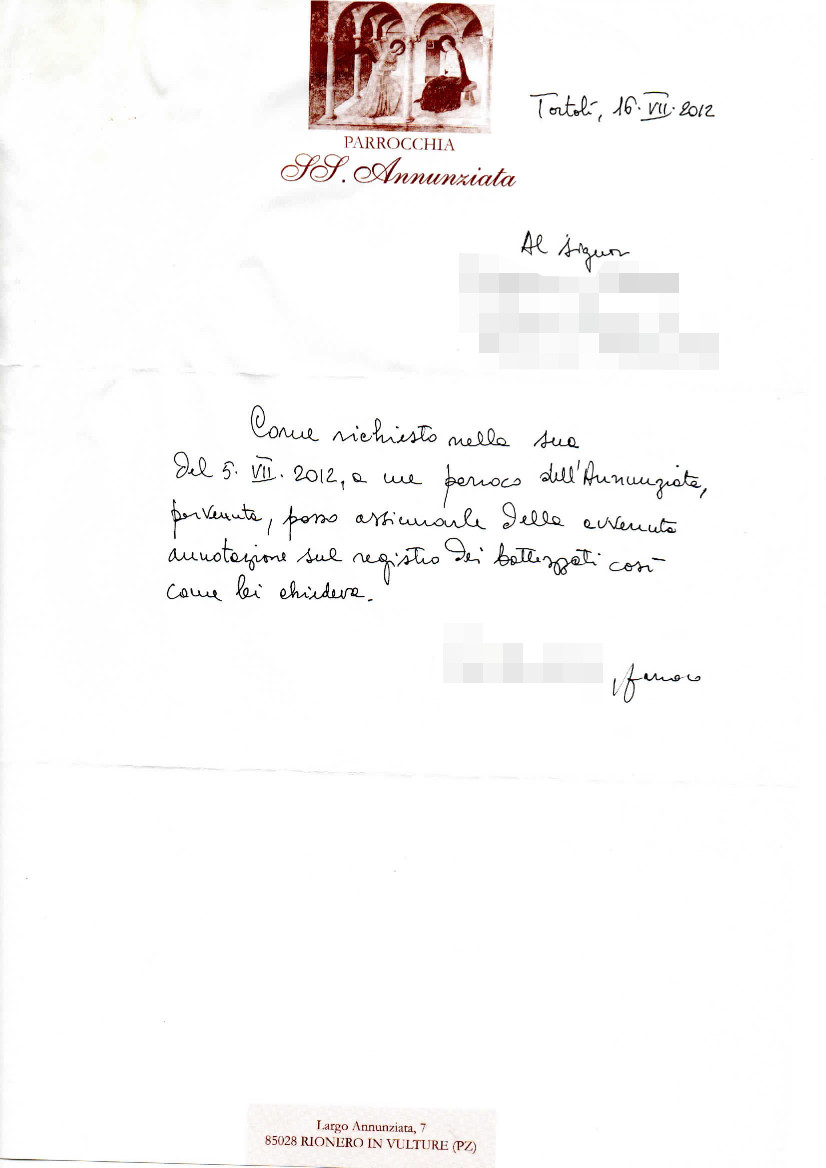 Tortolì, 16.VII.2012
PARROCCHIA
SS. Annunziata
Al Signor
Come richiesto nella sua
del 5.VII.2012, a me parroco dell'Annunziata,
pervenuta, posso assicurarle della avvenuta
annotazione sul registro dei battezzati così
come lei chiedeva.
parroco
Largo Annunziata, 7
85028 RIONERO IN VULTURE (PZ)